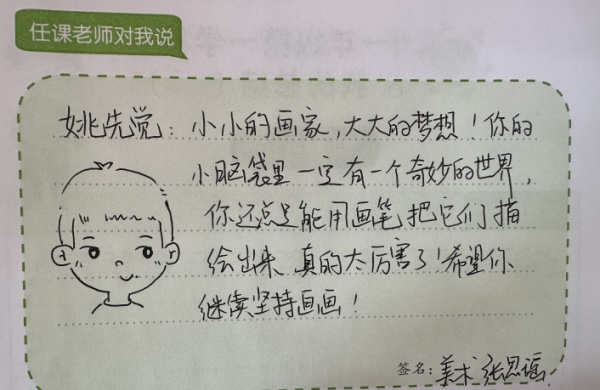 任课老师对我说
姚先觉：小小的画家，大大的梦想！你的
小脑袋里一定有一个奇妙的世界，
你还总是能用画笔把它们描
绘出来，真的太厉害了！希望你
继续坚持画画！
签名：美术 张思瑶